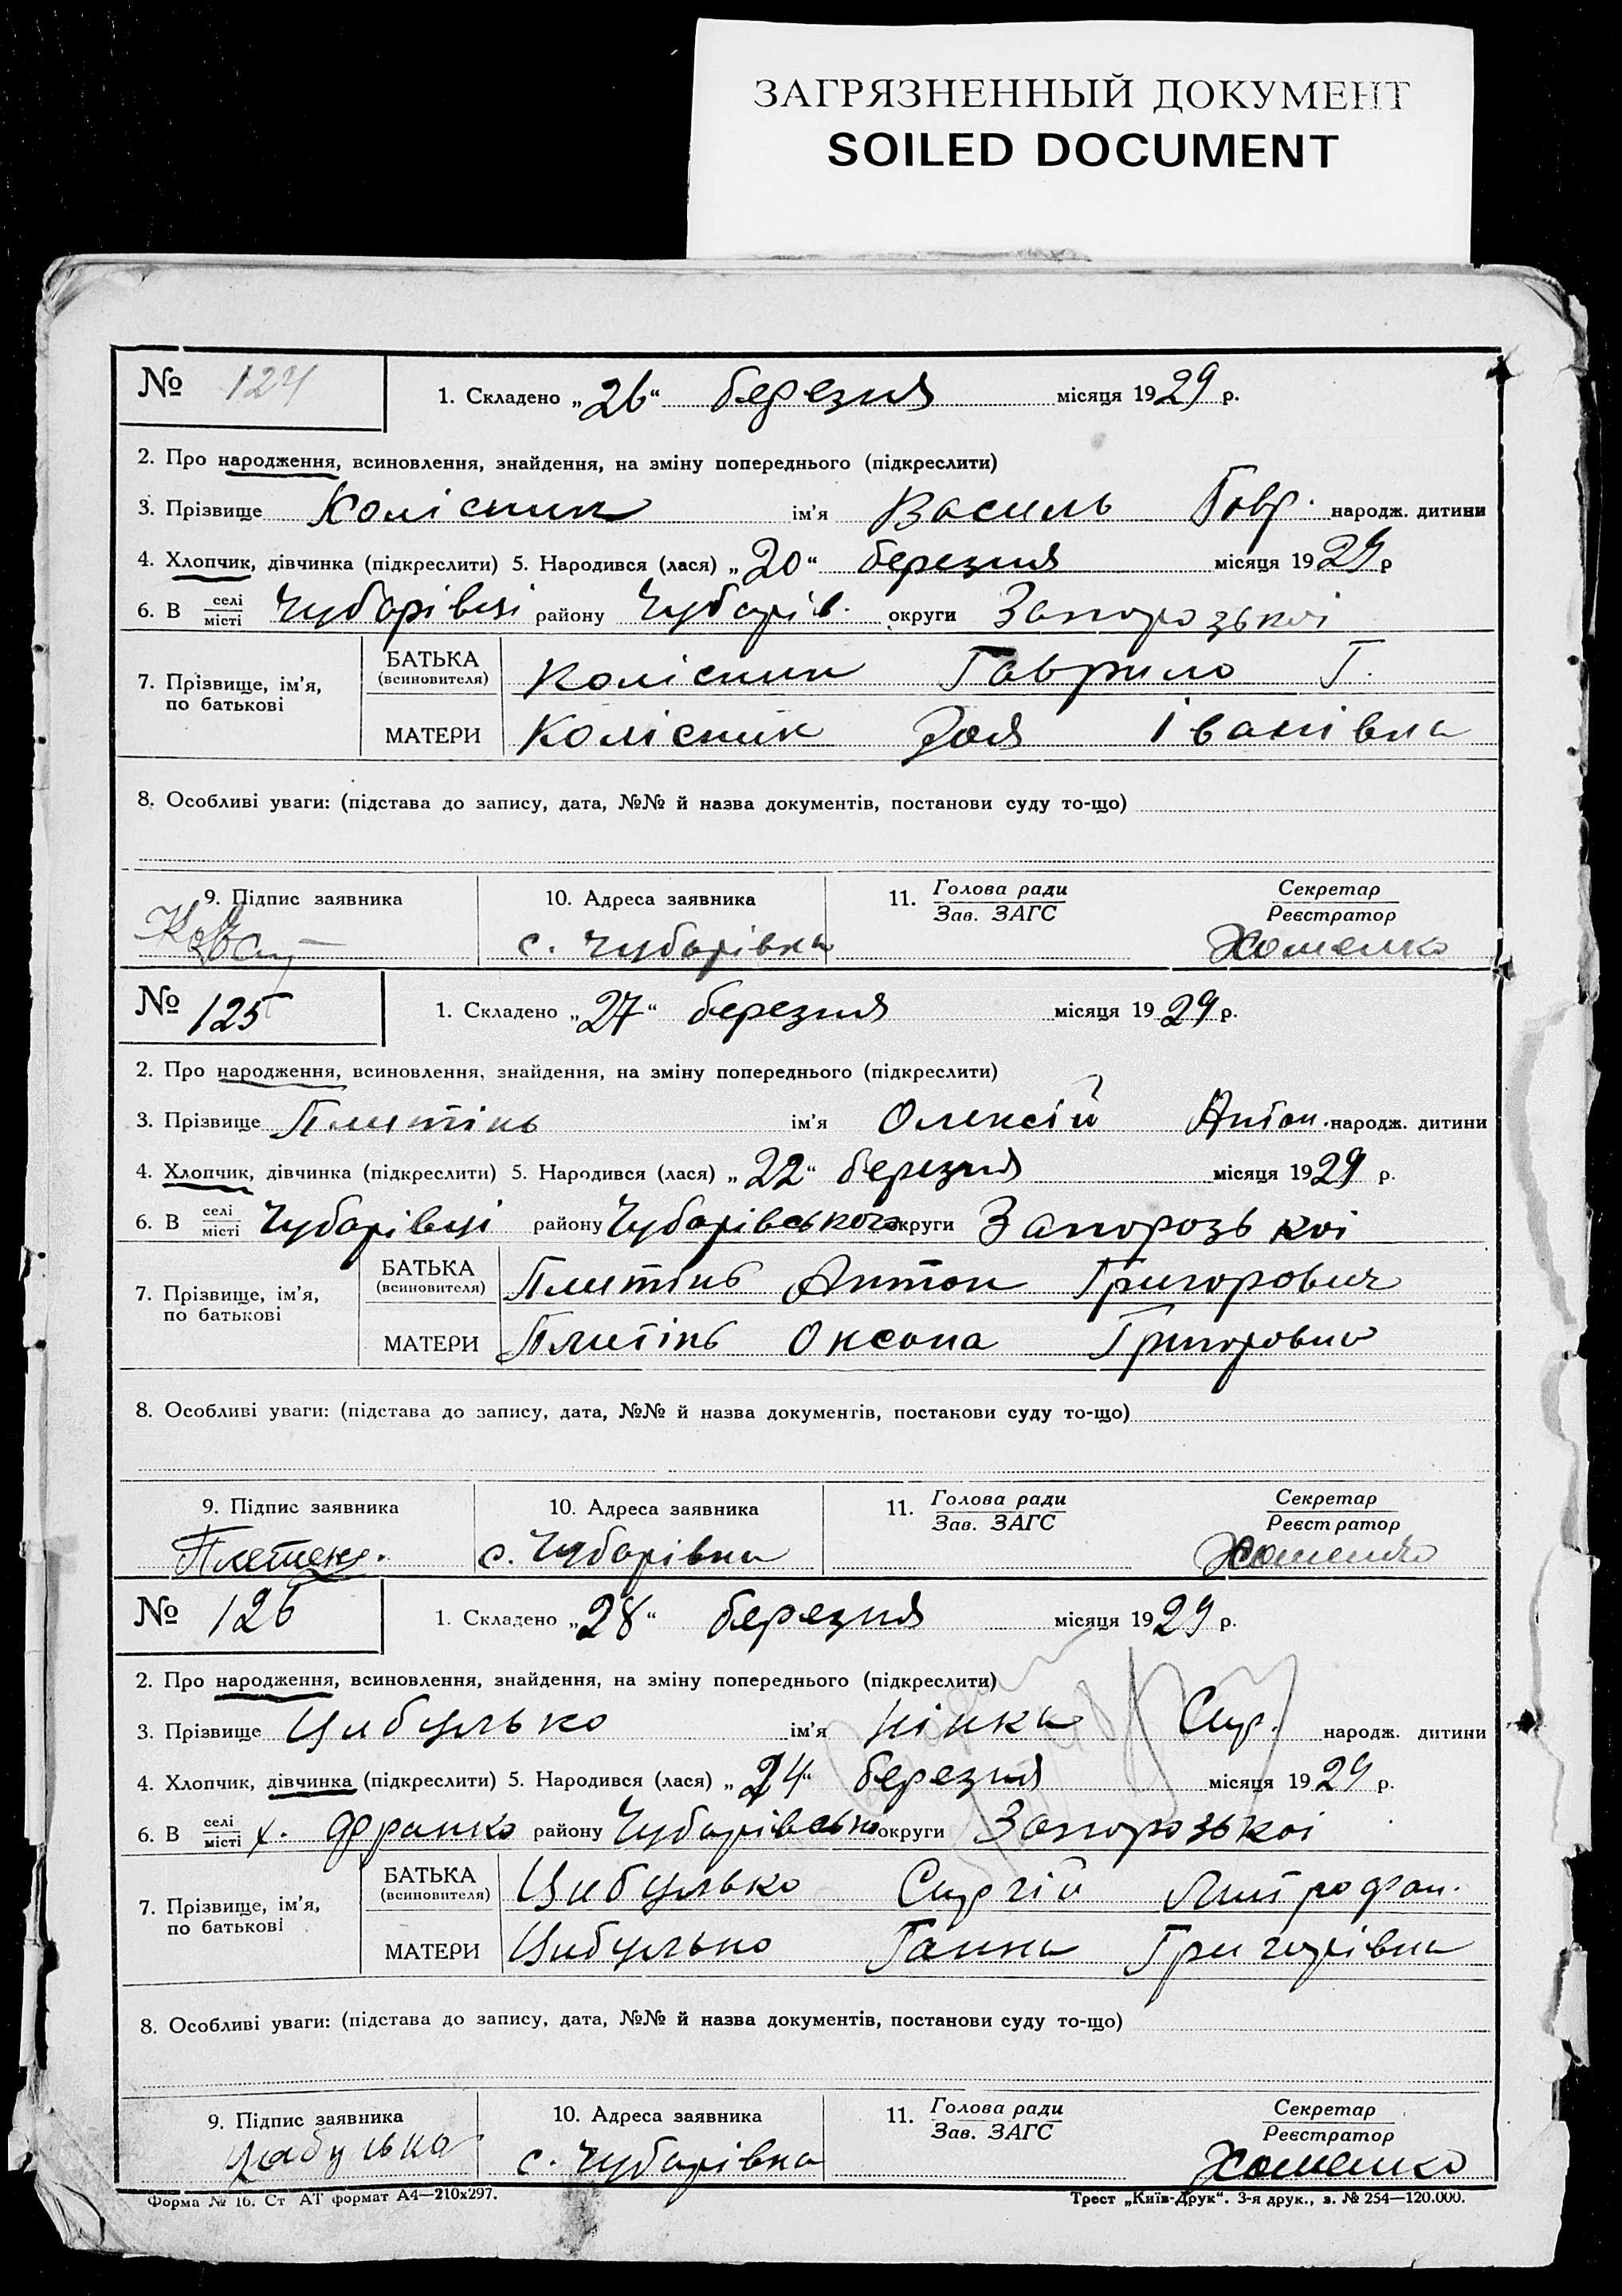 ЗАГРЯЗНЕННЫЙ ДОКУМЕНТ
SOILED DOCUMENT
№ 124 1. Складено „26“ березня місяця 1929 р.
2. Про народження, всиновлення, знайдення, на зміну попереднього (підкреслити)
3. Прізвище Колісник ім’я Василь Гавр. народж. дитини
4. Хлопчик, дівчинка (підкреслити) 5. Народився (лася) „20“ березня місяця 1929 р
6. В селі місті Чубарівці району Чубарів. округи Запорозькоі
7. Прізвище, ім’я, по батькові
БАТЬКА (всиновителя) Колісник Гаврило Г.
МАТЕРИ Колісник Іванівна
8. Особливі уваги: (підстава до запису, дата, №№ й назва документів, постанови суду то-що)
9. Підпис заявника 10. Адреса заявника 11. Голова ради Зав. ЗАГС Секретар Реєстратор
с. Чубарівка Хоменко
№ 125 1. Складено „27“ березня місяця 1929 р.
2. Про народження, всиновлення, знайдення, на зміну попереднього (підкреслити)
3. Прізвище Плитінь ім’я Олексій Антон. народж. дитини
4. Хлопчик, дівчинка (підкреслити) 5. Народився (лася) „22“ березня місяця 1929 р.
6. В селі місті Чубарівці району Чубарівського округи Запорозькоі
7. Прізвище, ім’я, по батькові
БАТЬКА (всиновителя) Плитінь Антон Григорович
МАТЕРИ Плитінь Оксана
8. Особливі уваги: (підстава до запису, дата, №№ й назва документів, постанови суду то-що)
9. Підпис заявника 10. Адреса заявника 11. Голова ради Зав. ЗАГС Секретар Реєстратор
с. Чубарівка Хоменко
№ 126 1. Складено „28“ березня місяця 1929 р.
2. Про народження, всиновлення, знайдення, на зміну попереднього (підкреслити)
3. Прізвище Цибулько ім’я Нінка Сир. народж. дитини
4. Хлопчик, дівчинка (підкреслити) 5. Народився (лася) „24“ березня місяця 1929 р.
6. В селі місті х. Франко району Чубарівсько округи Запорозькоі
7. Прізвище, ім’я, по батькові
БАТЬКА (всиновителя) Цибулько Сиргій Митрофан.
МАТЕРИ Цибулько Ганна Григорівна
8. Особливі уваги: (підстава до запису, дата, №№ й назва документів, постанови суду то-що)
9. Підпис заявника 10. Адреса заявника 11. Голова ради Зав. ЗАГС Секретар Реєстратор
с. Чубарівка Хоменко
Форма № 16. Ст АТ формат А4—210х297. Трест „Київ-Друк“. 3-я друк., з. № 254—120.000.